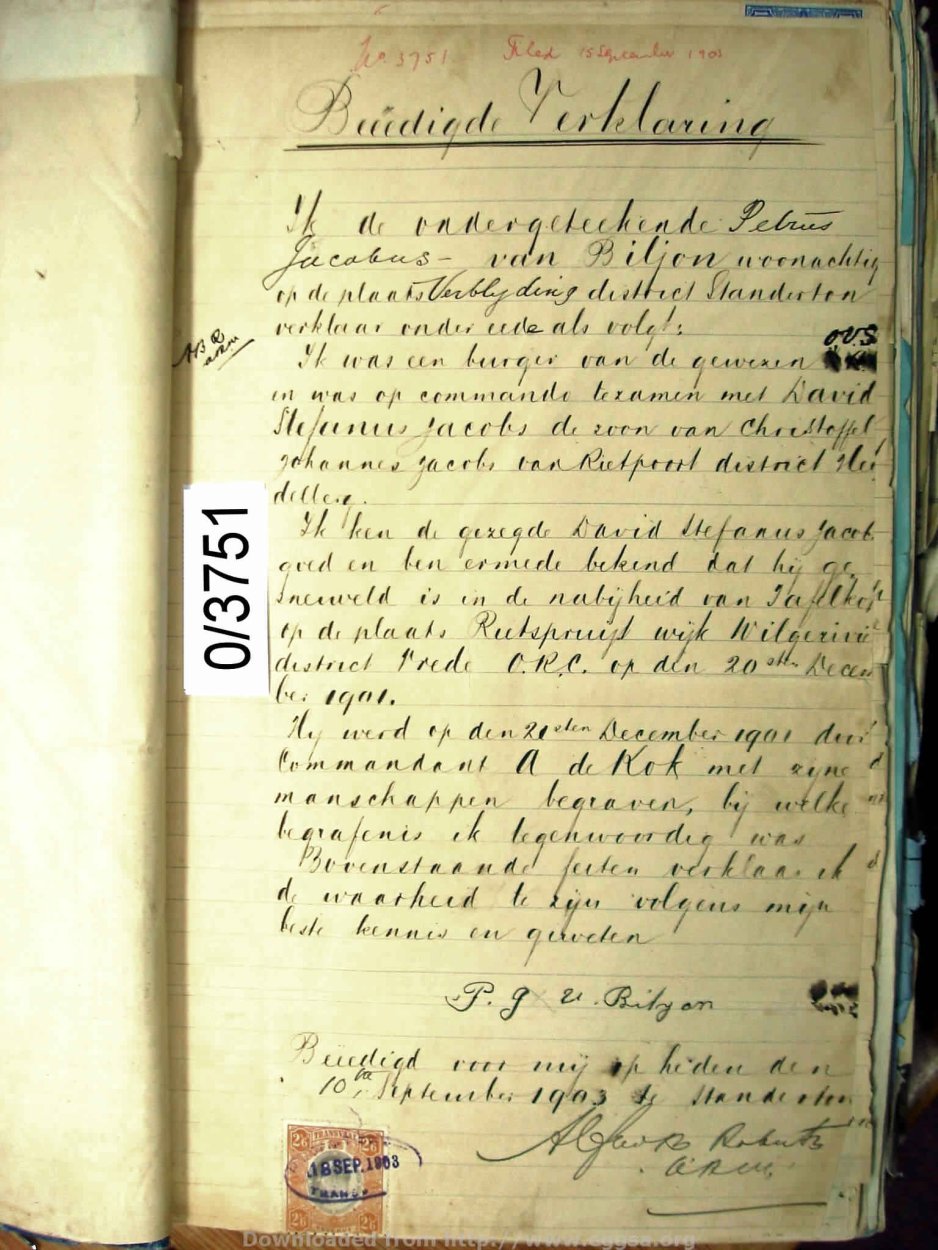 No. 3751 Filed 15 September 1903
Beëedigde Verklaring
Ik de ondergeteekende Petrus
Jacobus - van Biljon woonachtig
op de plaats Verblyding district Standerton
verklaar onder eede als volgt:
Ik was een burger van de gewezen OVS
en was op commando tezamen met David
Stefanus Jacobs de zoon van Christoffel
Johannes Jacobs van Rietpoort district Hei
delberg.
Ik ken de gezegde David Stefanus Jacobs
goed en ben ermede bekend dat hij ge
sneuveld is in de nabijheid van Tafelkop
op de plaats Rietspruijt wijk Wilgerivier
district Vrede O.R.C. op den 20sten Decem
ber 1901.
Hy werd op den 21sten December 1901 door
Commandant A de Kok met zyne
manschappen begraven, bij welke
begrafenis ik tegenwoordig was
Bovenstaande feiten verklaar ik
de waarheid te zijn volgens mijn
beste kennis en geweten
P. J v. Bilyon
Beëedigd voor mij op heden den
10de September 1903 te Standerton
Roberts
A.R.M.
0/3751
TRANSVAAL
2/6 2/6
18 SEP. 1903
2/6 2/6
Downloaded from http://www.eggsa.org